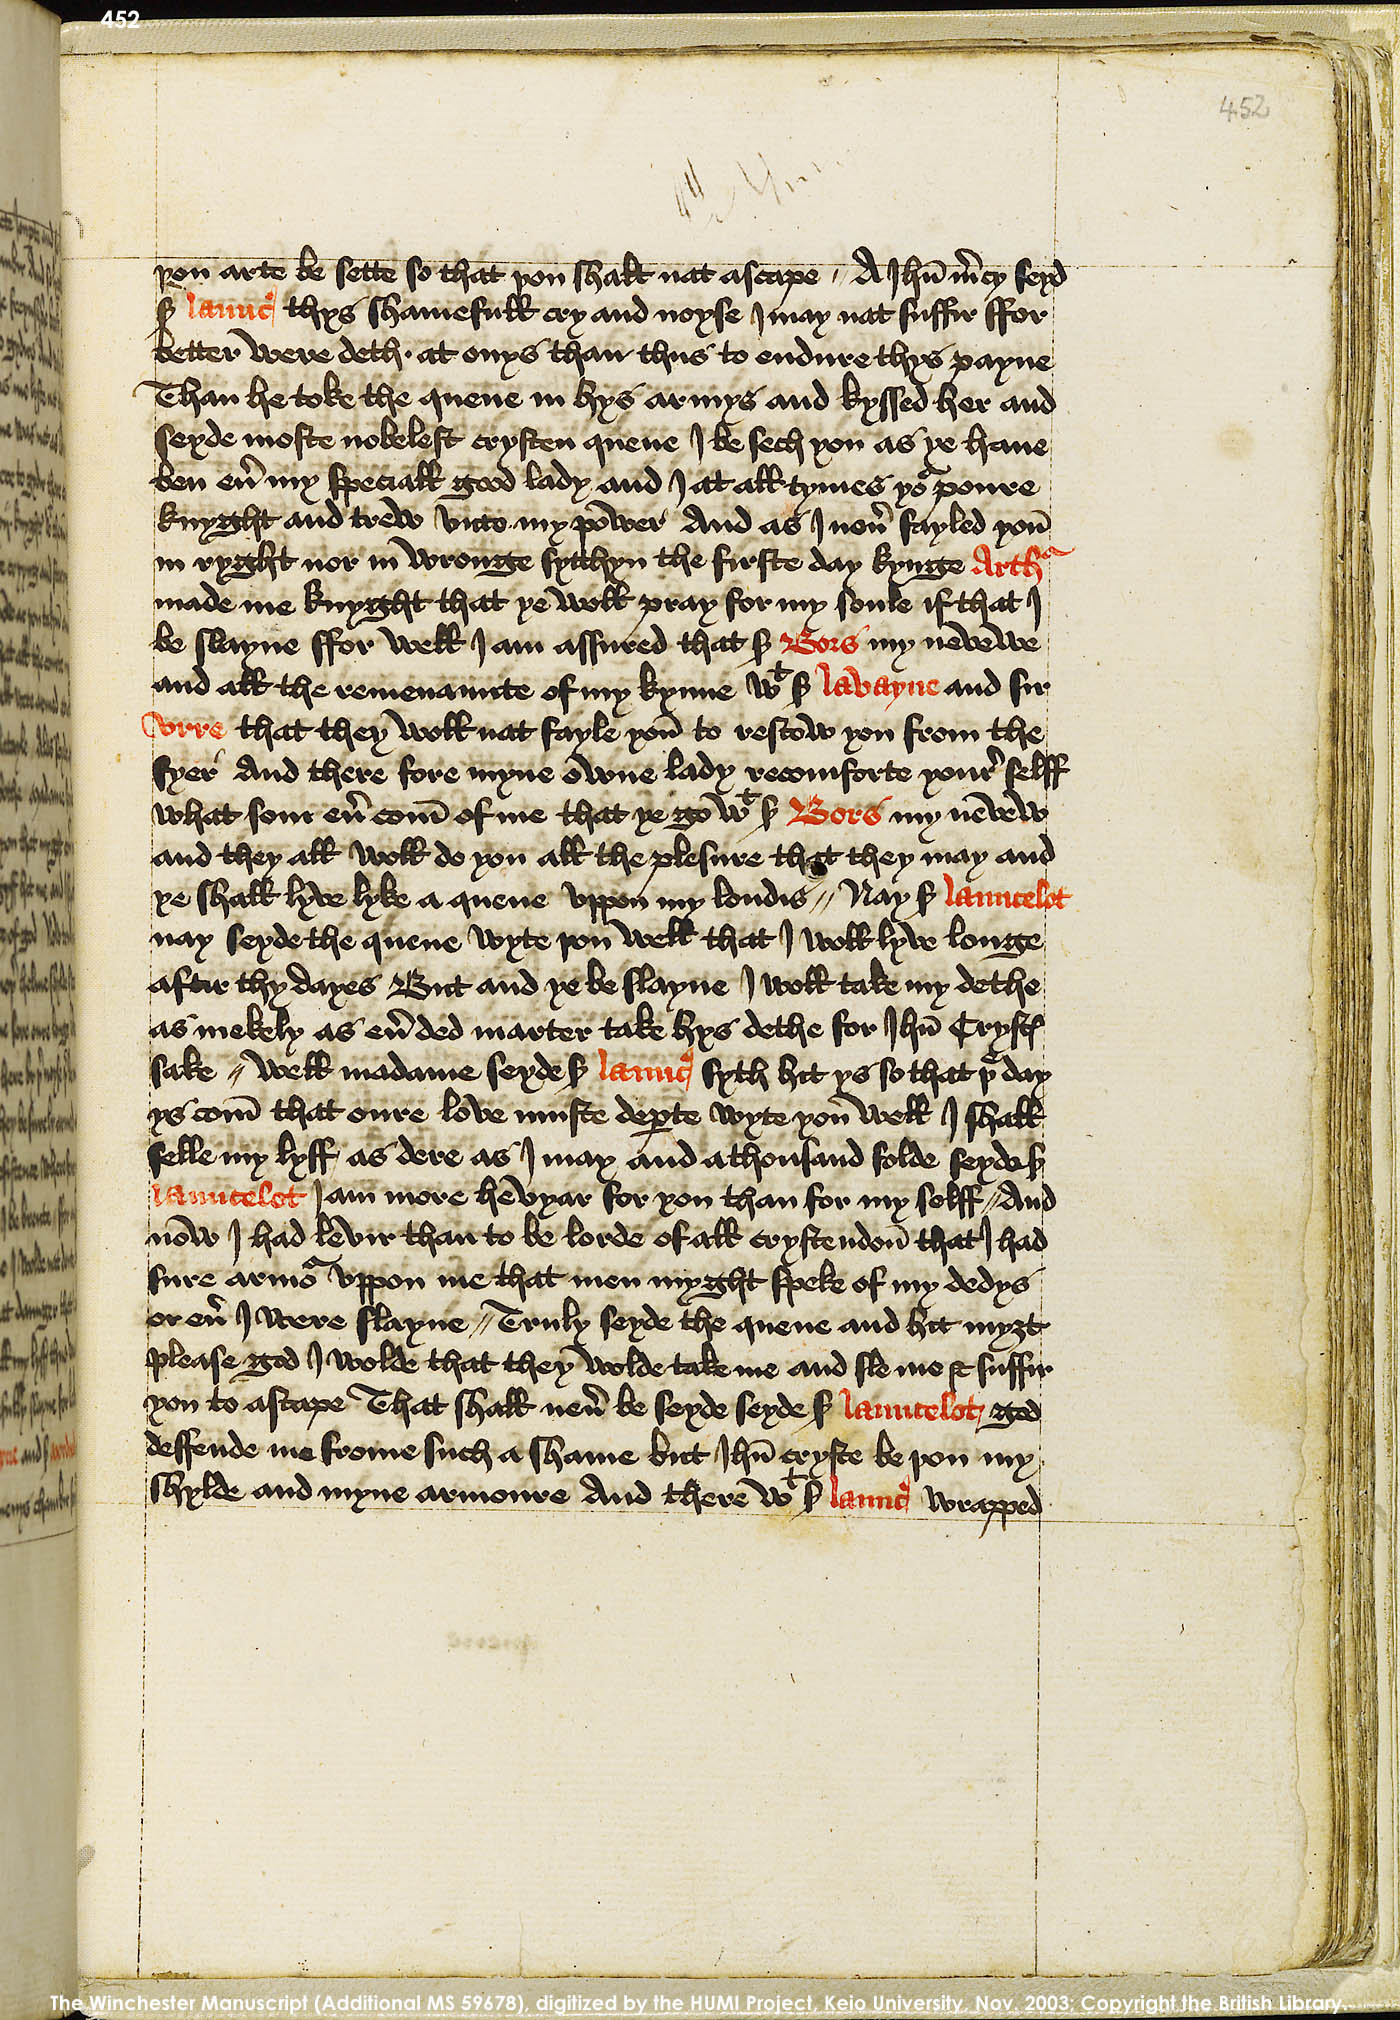 452
452
þou arte be sette so that þou shalt nat ascape // A Jhū m̄cy seyd
ẜ launc̉ thys shamefull cry and noyse I may nat suffir ffor
better were deth at onys than thus to endure thys payne
Than he toke the quene in hys armys and kyssed her and
seyde moste nobelest crysten quene I be sech you as ye haue
ben eũ my speciall good lady and I at all tymes yoͬ poure
knyght and trew vnto my power And as I neũ fayled you
in ryght nor in wronge sytthyn the firste day kynge Arthͬ
made me knyght that ye woll pray for my soule if that I
be slayne ffor well I am assured that ẜ Bors my nevewe
and all the remenaunte of my kynne wᵗ ẜ lavayne and sir
vrre that they woll nat fayle you to rescow you from the
fyer And there fore myne owne lady recomforte your selff
what som eũ com̄ of me that ye go wᵗ ẜ Bors my nevew
and they all woll do you all the plesure that they may and
ye shall lyve lyke a quene vppon my londis // Nay ẜ launcelot
nay seyde the quene wyte þou well that I woll lyve longe
aftir thy dayes But and ye be slayne I woll take my dethe
as mekely as eũ ded marter take hys dethe for Jhū Crystꝭ
sake // Well madame seyde ẜ launc̉ syth hit ys so that þͤ day
ys com̄ that oure love muste deꝑte wyte you well I shall
selle my lyff as dere as I may and a thousand folde seyde ẜ
launcelot I am more hevyar for you than for my selff // And
now I had levir than to be lorde of all crystendom̄ that I had
sure armoͬ vppon me that men myght speke of my dedys
or eũ I were slayne // Truly seyde the quene and hit myȝt
please god I wolde that they wolde take me and sle me & suffir
you to ascape That shall neũ be seyde seyde ẜ launcelot god
deffende me frome such a shame but Jhū cryste be þou my
shylde and myne armoure And there wᵗ ẜ launc̉ wrapped
The Winchester Manuscript (Additional MS 59678), digitized by the HUMI Project, Keio University, Nov. 2003; Copyright the British Library.